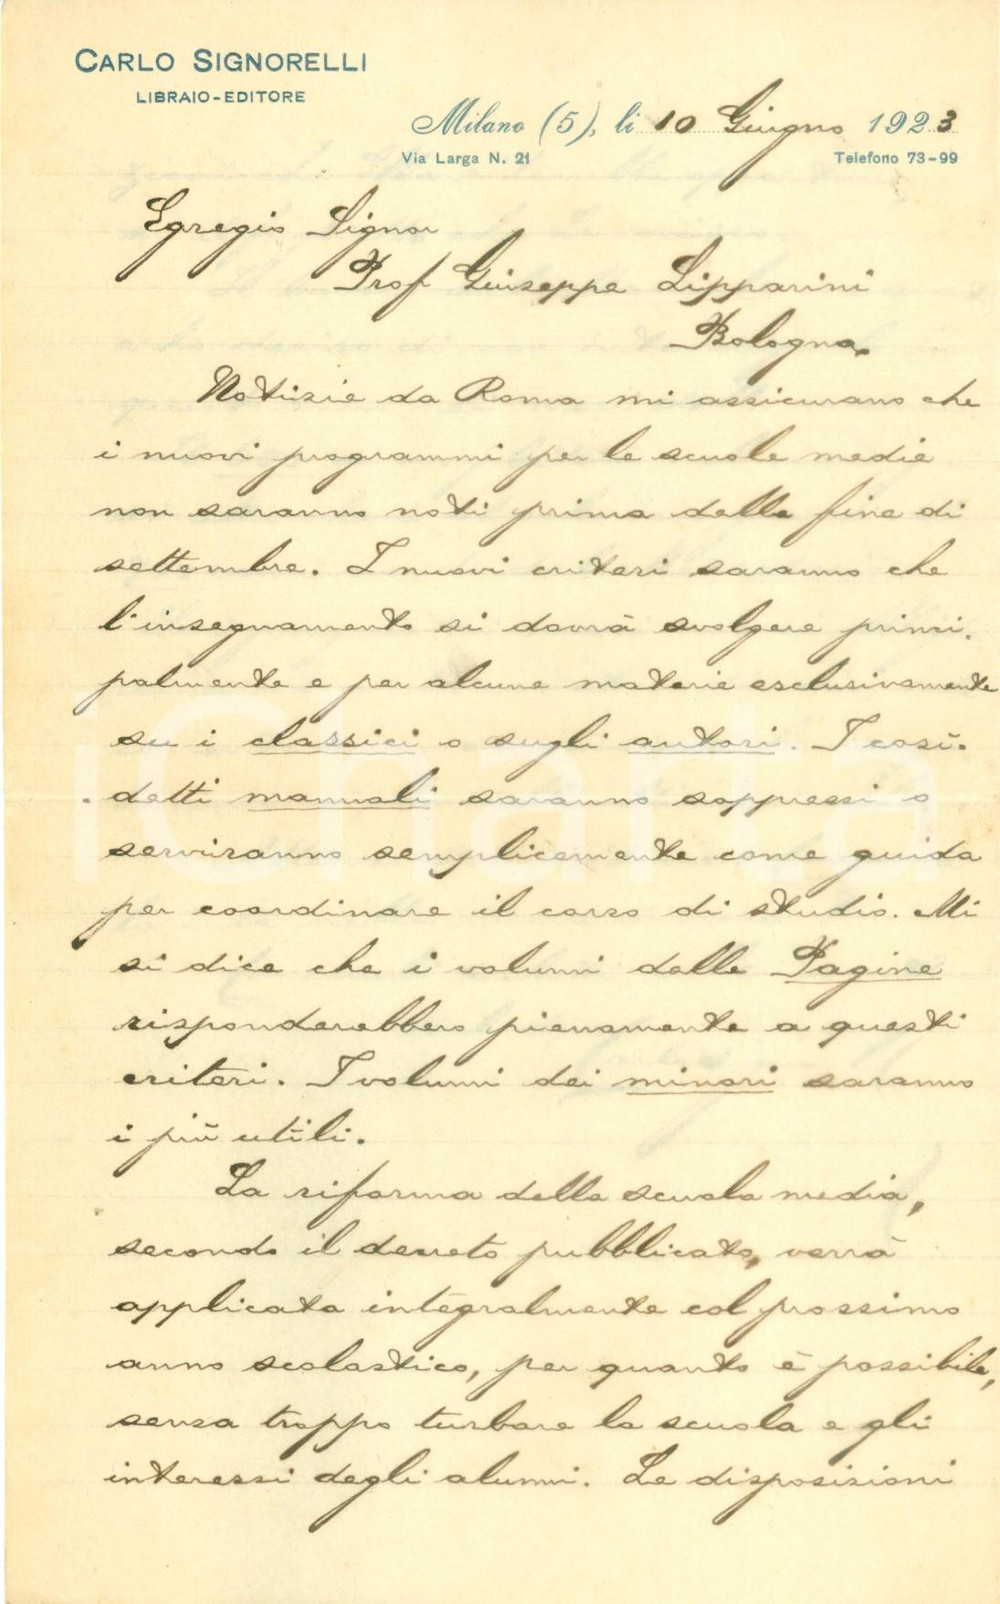 CARLO SIGNORELLI
LIBRAIO-EDITORE
Milano (5), li 10 Giugno 1923
Via Larga N. 21 Telefono 73-99
Egregio Signor
Prof Giuseppe Lipparini
Bologna.
Notizie da Roma mi assicurano che
i nuovi programmi per le scuole medie
non saranno noti prima della fine di
settembre. I nuovi criteri saranno che
l'insegnamento si dovrà svolgere princi.
palmente e per alcune materie esclusivamente
su i classici o sugli autori. I così.
. detti manuali saranno soppressi o
serviranno semplicemente come guida
per coordinare il corso di studio. Mi
si dice che i volumi delle Pagine
risponderebbero pienamente a questi
criteri. I volumi dei minori saranno
i più utili.
La riforma della scuola media,
secondo il decreto pubblicato, verrà
applicata integralmente col prossimo
anno scolastico, per quanto è possibile,
senza troppo turbare la scuola e gli
interessi degli alunni. Le disposizioni
iCharta